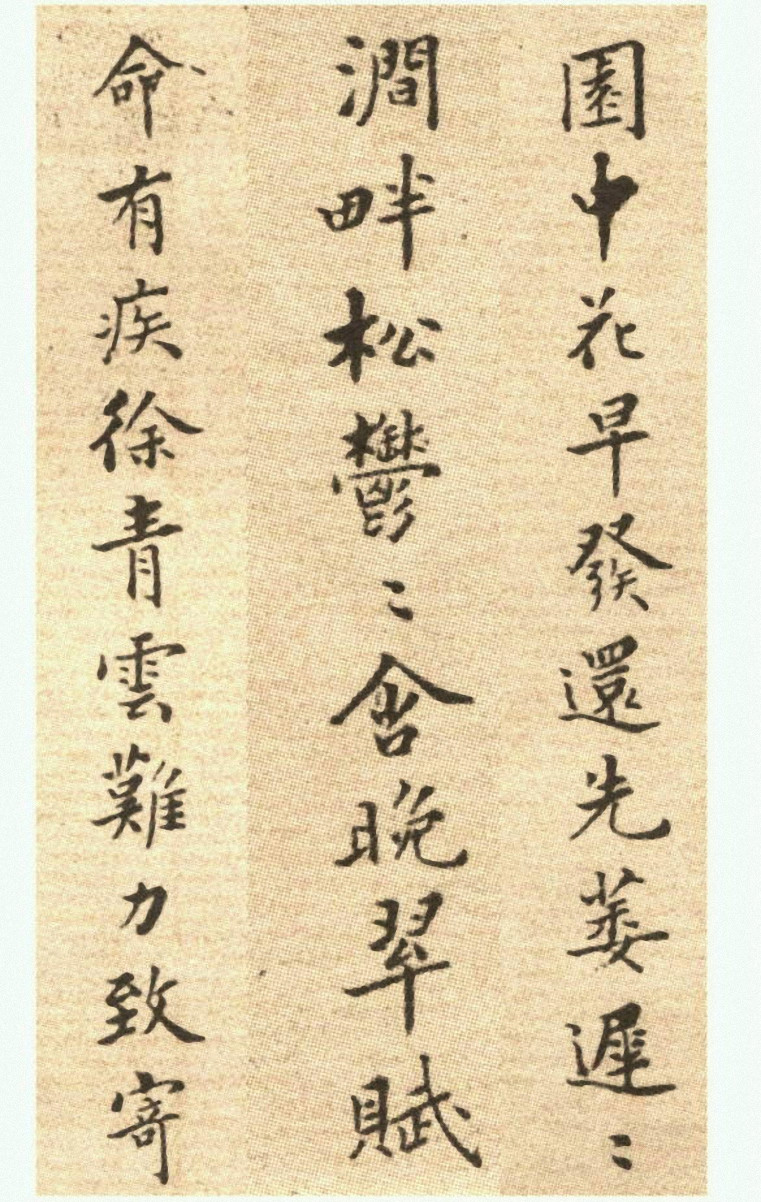 園中花早發還先萎遲〻
澗畔松鬱〻含晚翠賦
命有疾徐青雲難力致寄